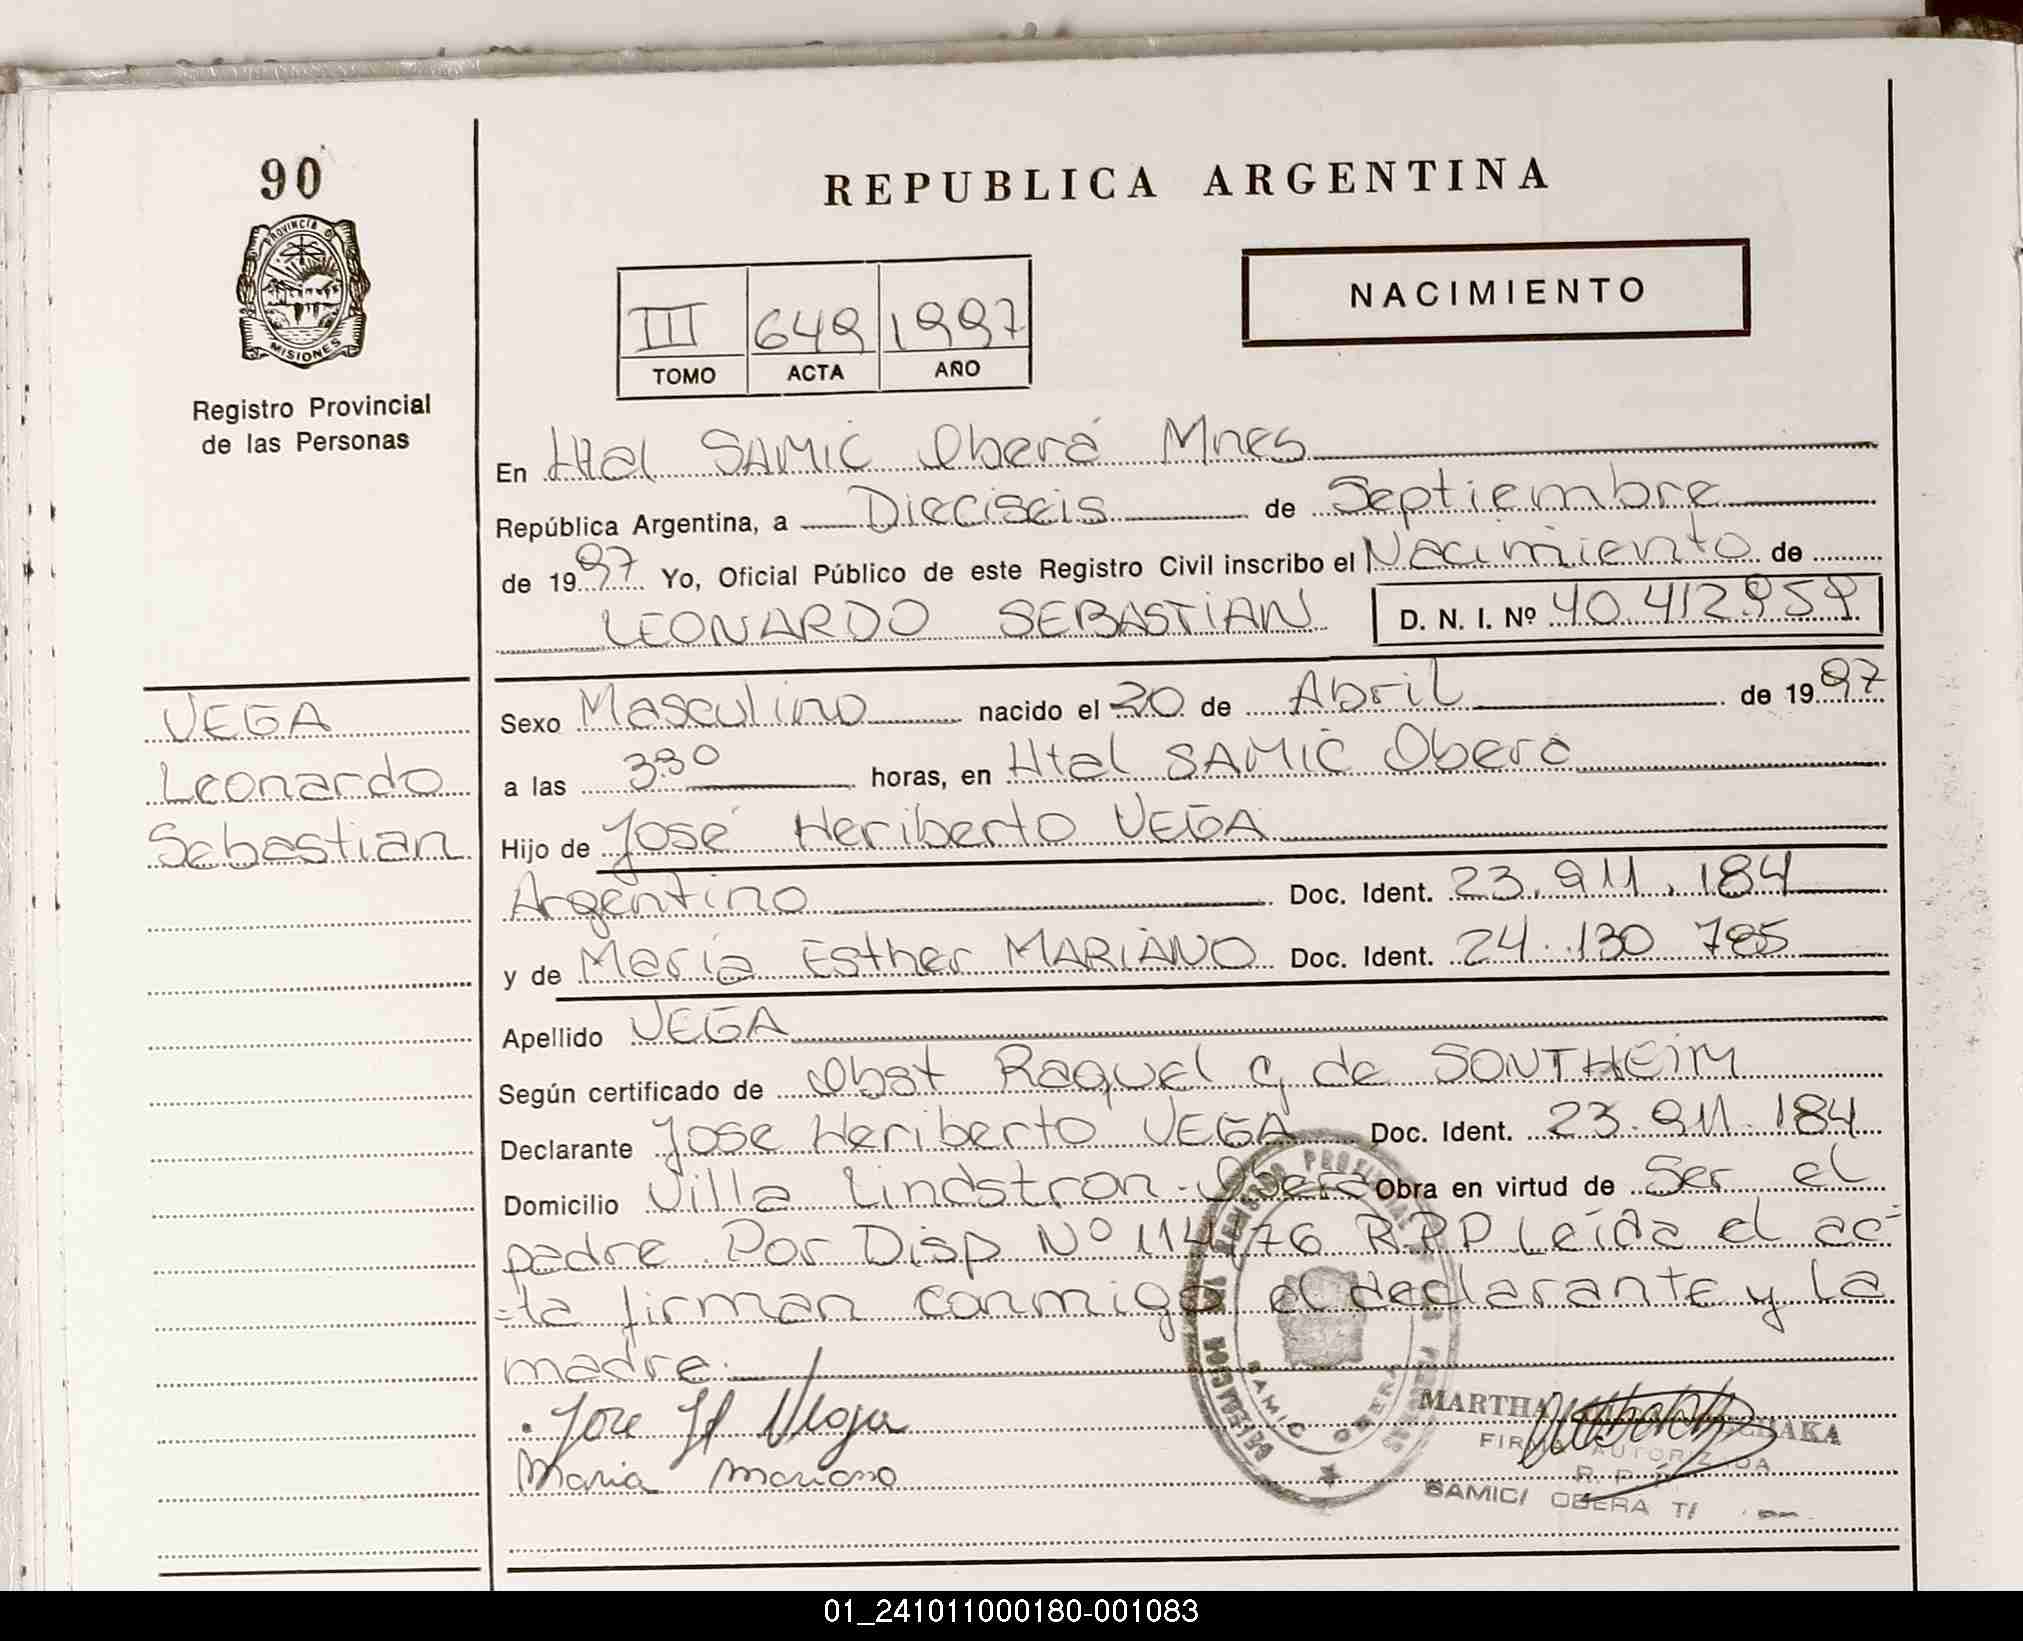 90
PROVINCIA D
MISIONES
Registro Provincial
de las Personas
REPUBLICA ARGENTINA
NACIMIENTO
III 649 1997
TOMO ACTA AÑO
En Htal SAMIC Oberá Mnes
República Argentina, a Dieciseis de Septiembre
de 1997 Yo, Oficial Público de este Registro Civil inscribo el Nacimiento de
LEONARDO SEBASTIAN D. N. I. Nº 40.412.959
VEGA
Leonardo
Sebastian
Sexo Masculino nacido el 20 de Abril de 1997
a las 3.30 horas, en Htal SAMIC Obera
Hijo de José Heriberto VEGA
Argentino Doc. Ident. 23.911.184
y de María Esther MARIANO Doc. Ident. 24.130 785
Apellido VEGA
Según certificado de Obst Raquel G de SONTHEIM
Declarante Jose Heriberto VEGA Doc. Ident. 23.911.184
Domicilio Villa Lindstron - Obera Obra en virtud de Ser el
padre. Por Disp Nº 114/76 R.P.P Leída el ac-
-ta firman conmigo el declarante y la
madre.
Jose H Vega
Maria Mariano
REGISTRO PROVINCIAL DE LAS PERSONAS
DELEGACION
SAMIC OBERA
MARTHA
FIRMA AUTORIZADA
R. P. P.
SAMIC/ OBERA T/
01_241011000180-001083